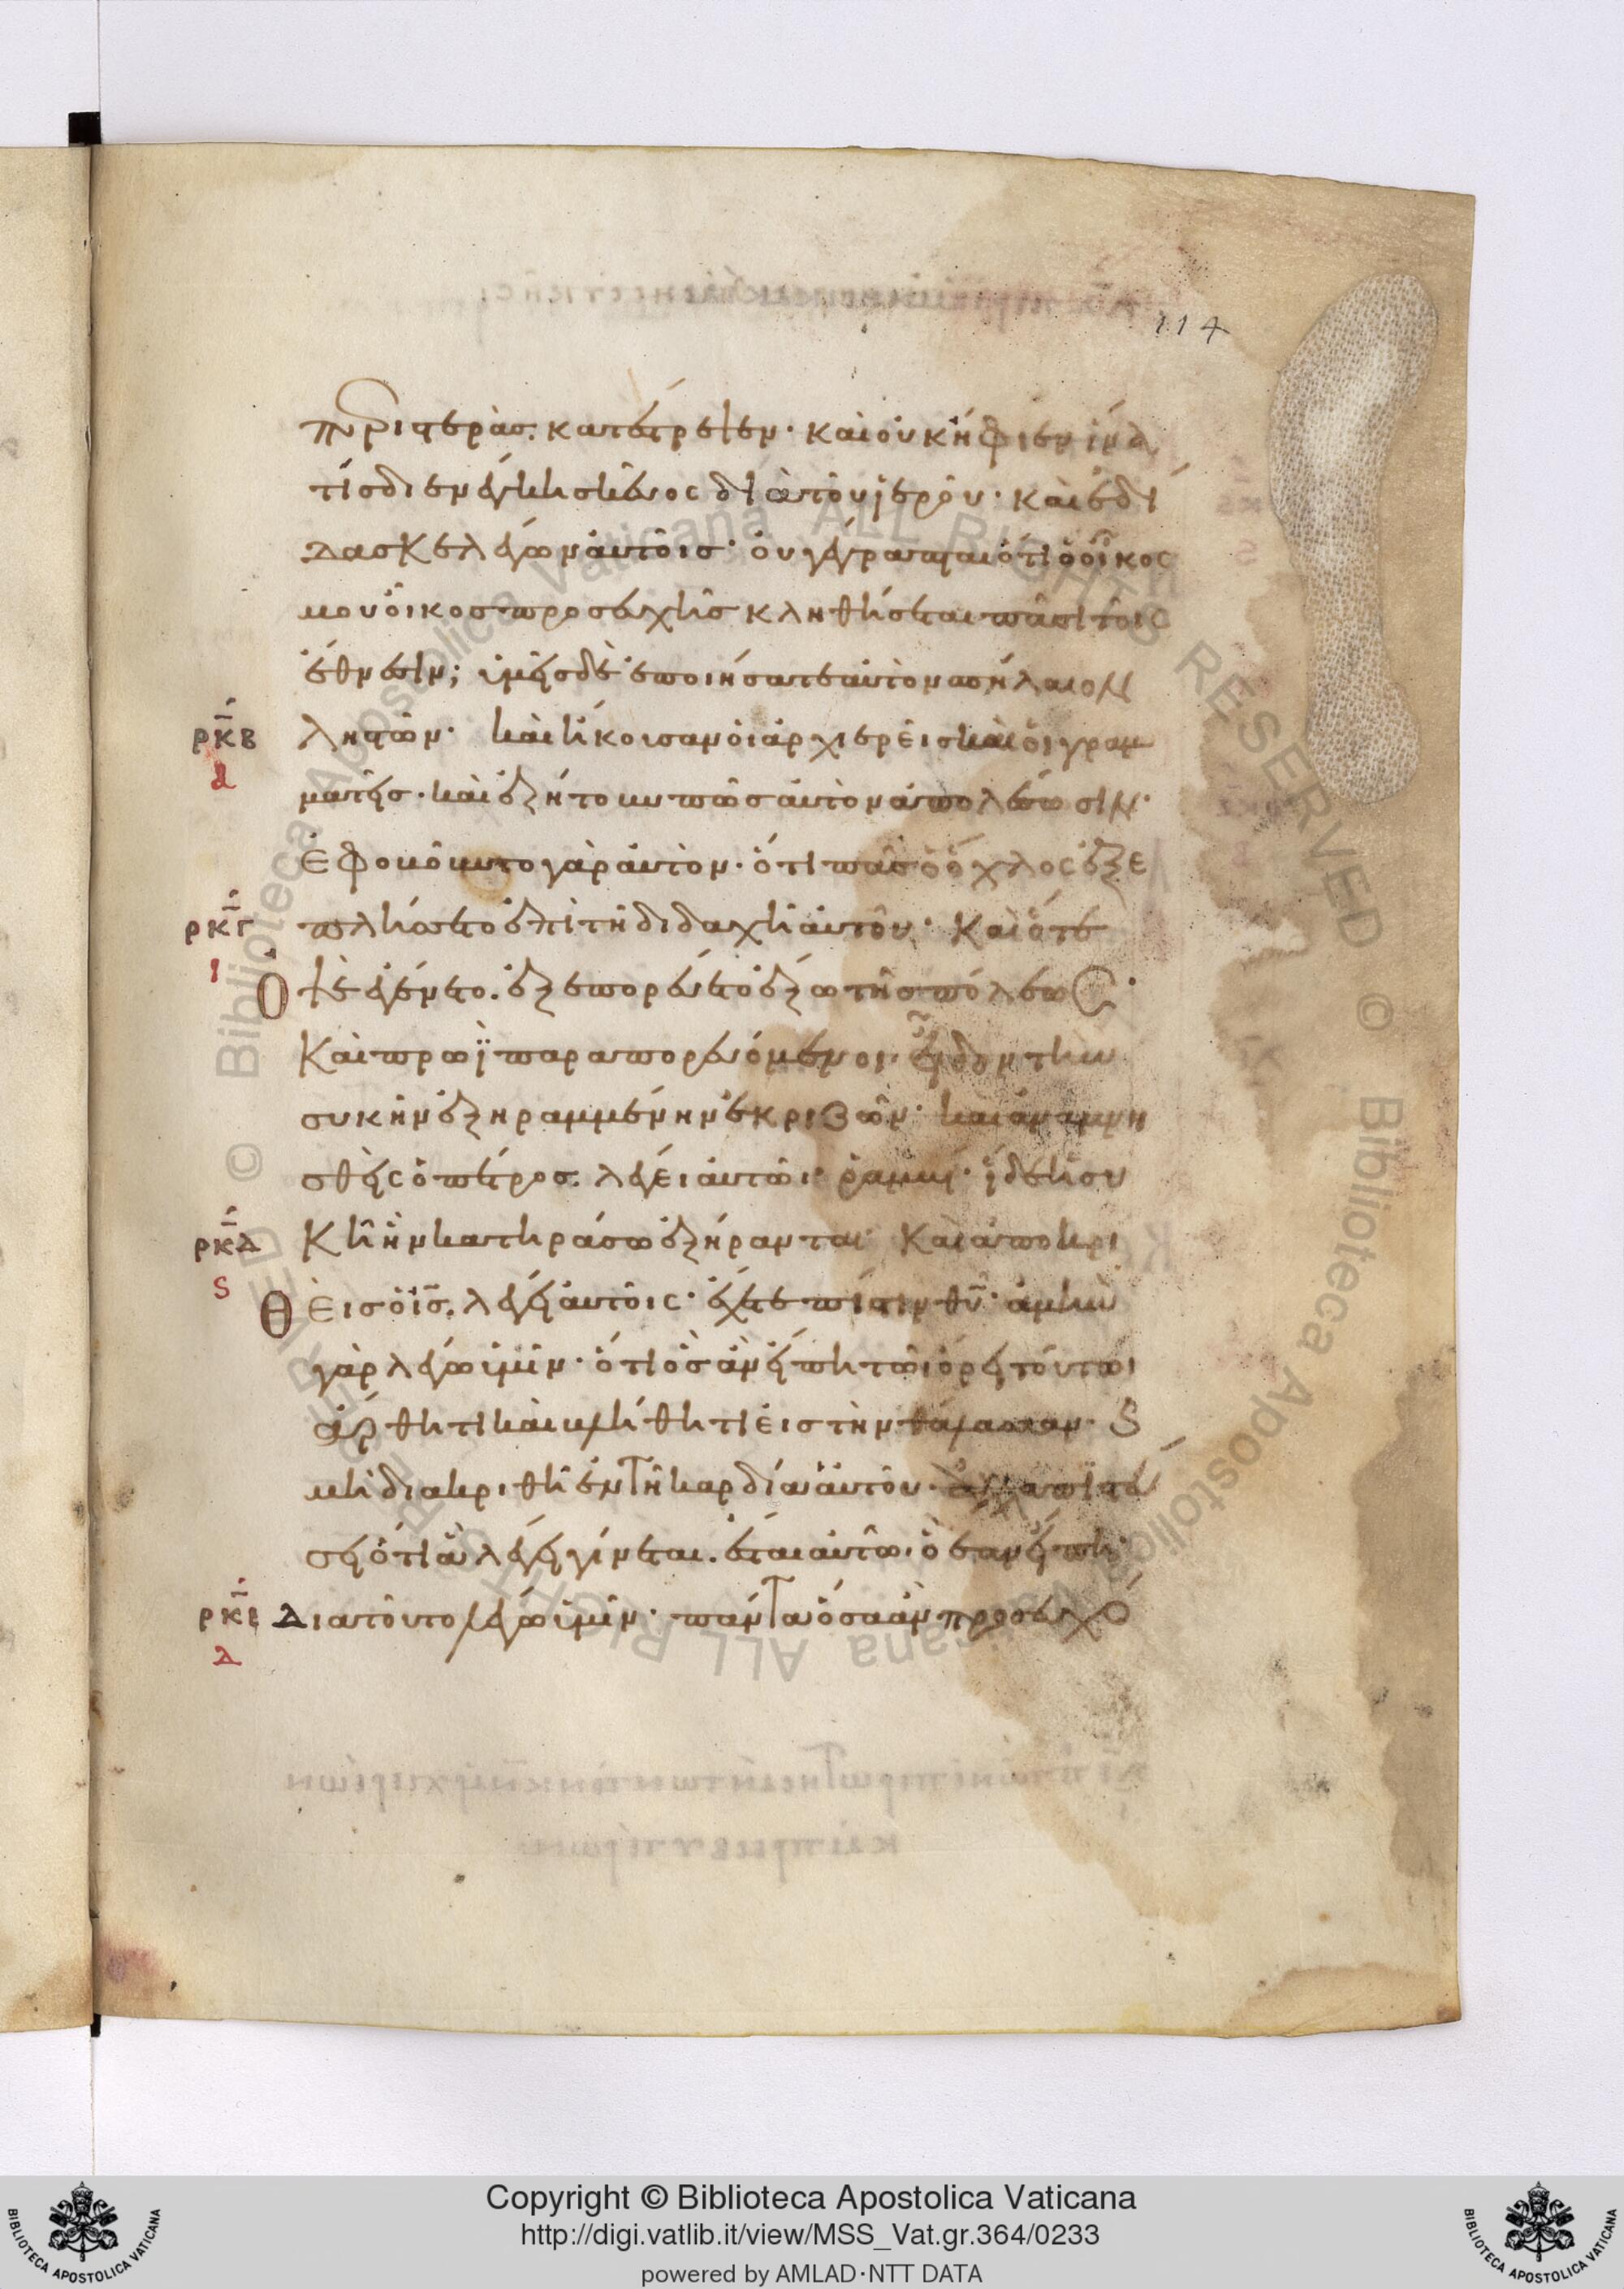 114
περιστερὰς. κατέστρεψεν· καὶ οὐκ ἤφιεν ἵνα
τίς διενέγκη σκεῦος διὰ τοῦ ἱεροῦ· καὶ ἐδί
δασκε λέγων αὐτοῖς· οὐ γέγραπται ὅτι ὁ οἶκος
μου οἶκος προσευχῆς κληθήσεται πᾶσι τοῖς
ἔθνεσιν; ὑμεῖς δὲ ἐποιήσατε αὐτὸν σπήλαιον
ρκβ ληστῶν· καὶ ἤκουσαν οἱ ἀρχιερεῖς καὶ οἱ γραμ
α
ματεῖς· καὶ ἐζήτουν πῶς αὐτὸν ἀπολέσωσιν·
ἐφοβοῦντο γὰρ αὐτόν· ὅτι πᾶς ὁ ὄχλος ἐξε
ρκγ πλήσσετο ἐπὶ τῆ διδαχῆ αὐτοῦ· Καὶ ὅτε
ι
Ὀψὲ ἐγένετο. ἐξεπορεύετο ἔξω τῆς πόλεως·
Καὶ πρωῒ παραπορευόμενοι· εἶδον τὴν
συκῆν ἐξηραμμένην ἐκ ριζῶν· καὶ ἀναμνη
σθεὶς ὁ πέτρος. λέγει αὐτῶι· ραββί· ἴδε ἡ συ
ρκδ κῆ ἣν κατηράσω ἐξήρανται· Καὶ ἀποκρι
ς
Θεὶς ὁ ις. λέγει αὐτοῖς· ἔχετε πίστιν θυ· ἀμὴν
γὰρ λέγω ὑμῖν· ὅτι ὃς ἂν εἴπη τῶι ὄρει τούτωι
ἄρθητι καὶ βλήθητι εἰς τὴν θάλασσαν· ϛ
μὴ διακριθῆ ἐν τῆ καρδία αὐτοῦ· ἀλλὰ πιστεύ
σει ὅτι ἃ λέγει γίνεται. ἔσται αὐτῶ· ὃ ἐὰν εἴπη·
ρκε Διατοῦτο λέγω ὑμῖν· πάντα ὅσα ἂν προσευχό
Δ
Copyright © Biblioteca Apostolica Vaticana
http://digi.vatlib.it/view/MSS_Vat.gr.364/0233
powered by AMLAD·NTT DATA
BIBLIOTECA APOSTOLICA VATICANA
BIBLIOTECA APOSTOLICA VATICANA